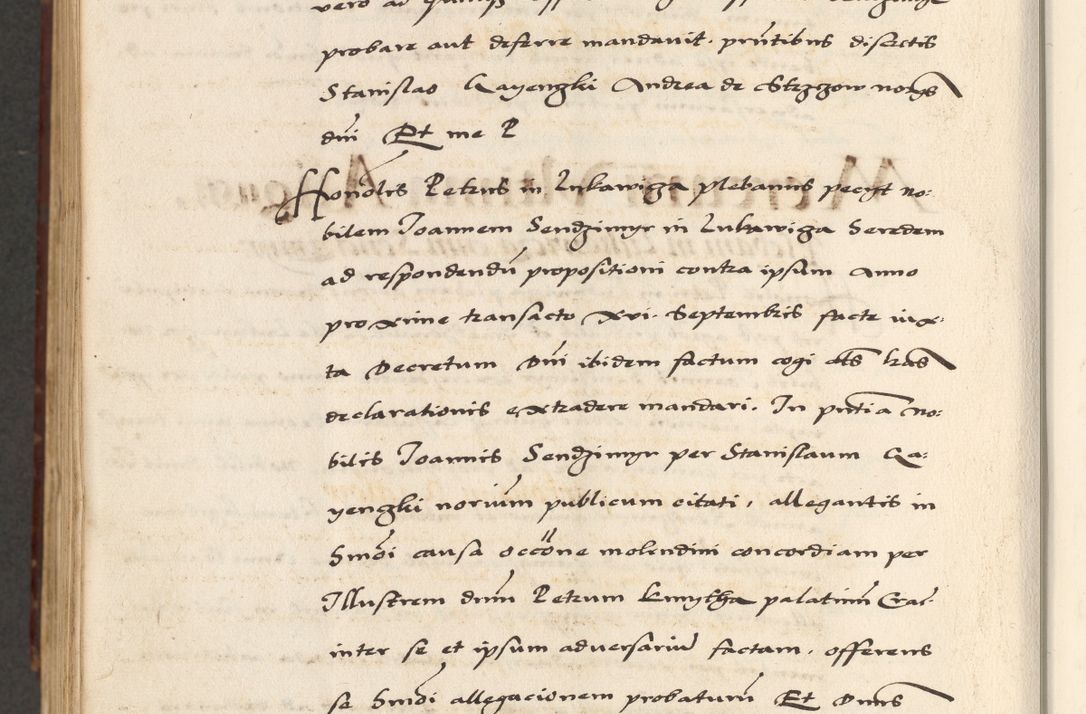 probare aut deferre mandavit. pntibus disectis
Stanislao Gayenzki Andrea de Strzezow norys
dni Et me P
Honolis Petrus in Lukawicza plebanus pecyt no:
bilem Joannem Sendzimyr in Lukawicza heredem
ad respondendu propositioni contra ipsum Anno
proxime transacto xvi. Septembris facte iux:
ta Decretum Dni ibidem factum cogi atq lras
declarationis extradere mandari. In pntia no:
bilis Joannis Sendzimyr per Stanislaum Ga:
yenzki norium publicum citati, allegantis in
hmoi causa occone molendini concordiam per
Illustrem dnm Petrum Kmytha palatinu Crac:
inter se et ipsum adversariu factam. offerens
se hmoi allegacionem probaturu Et Dnus